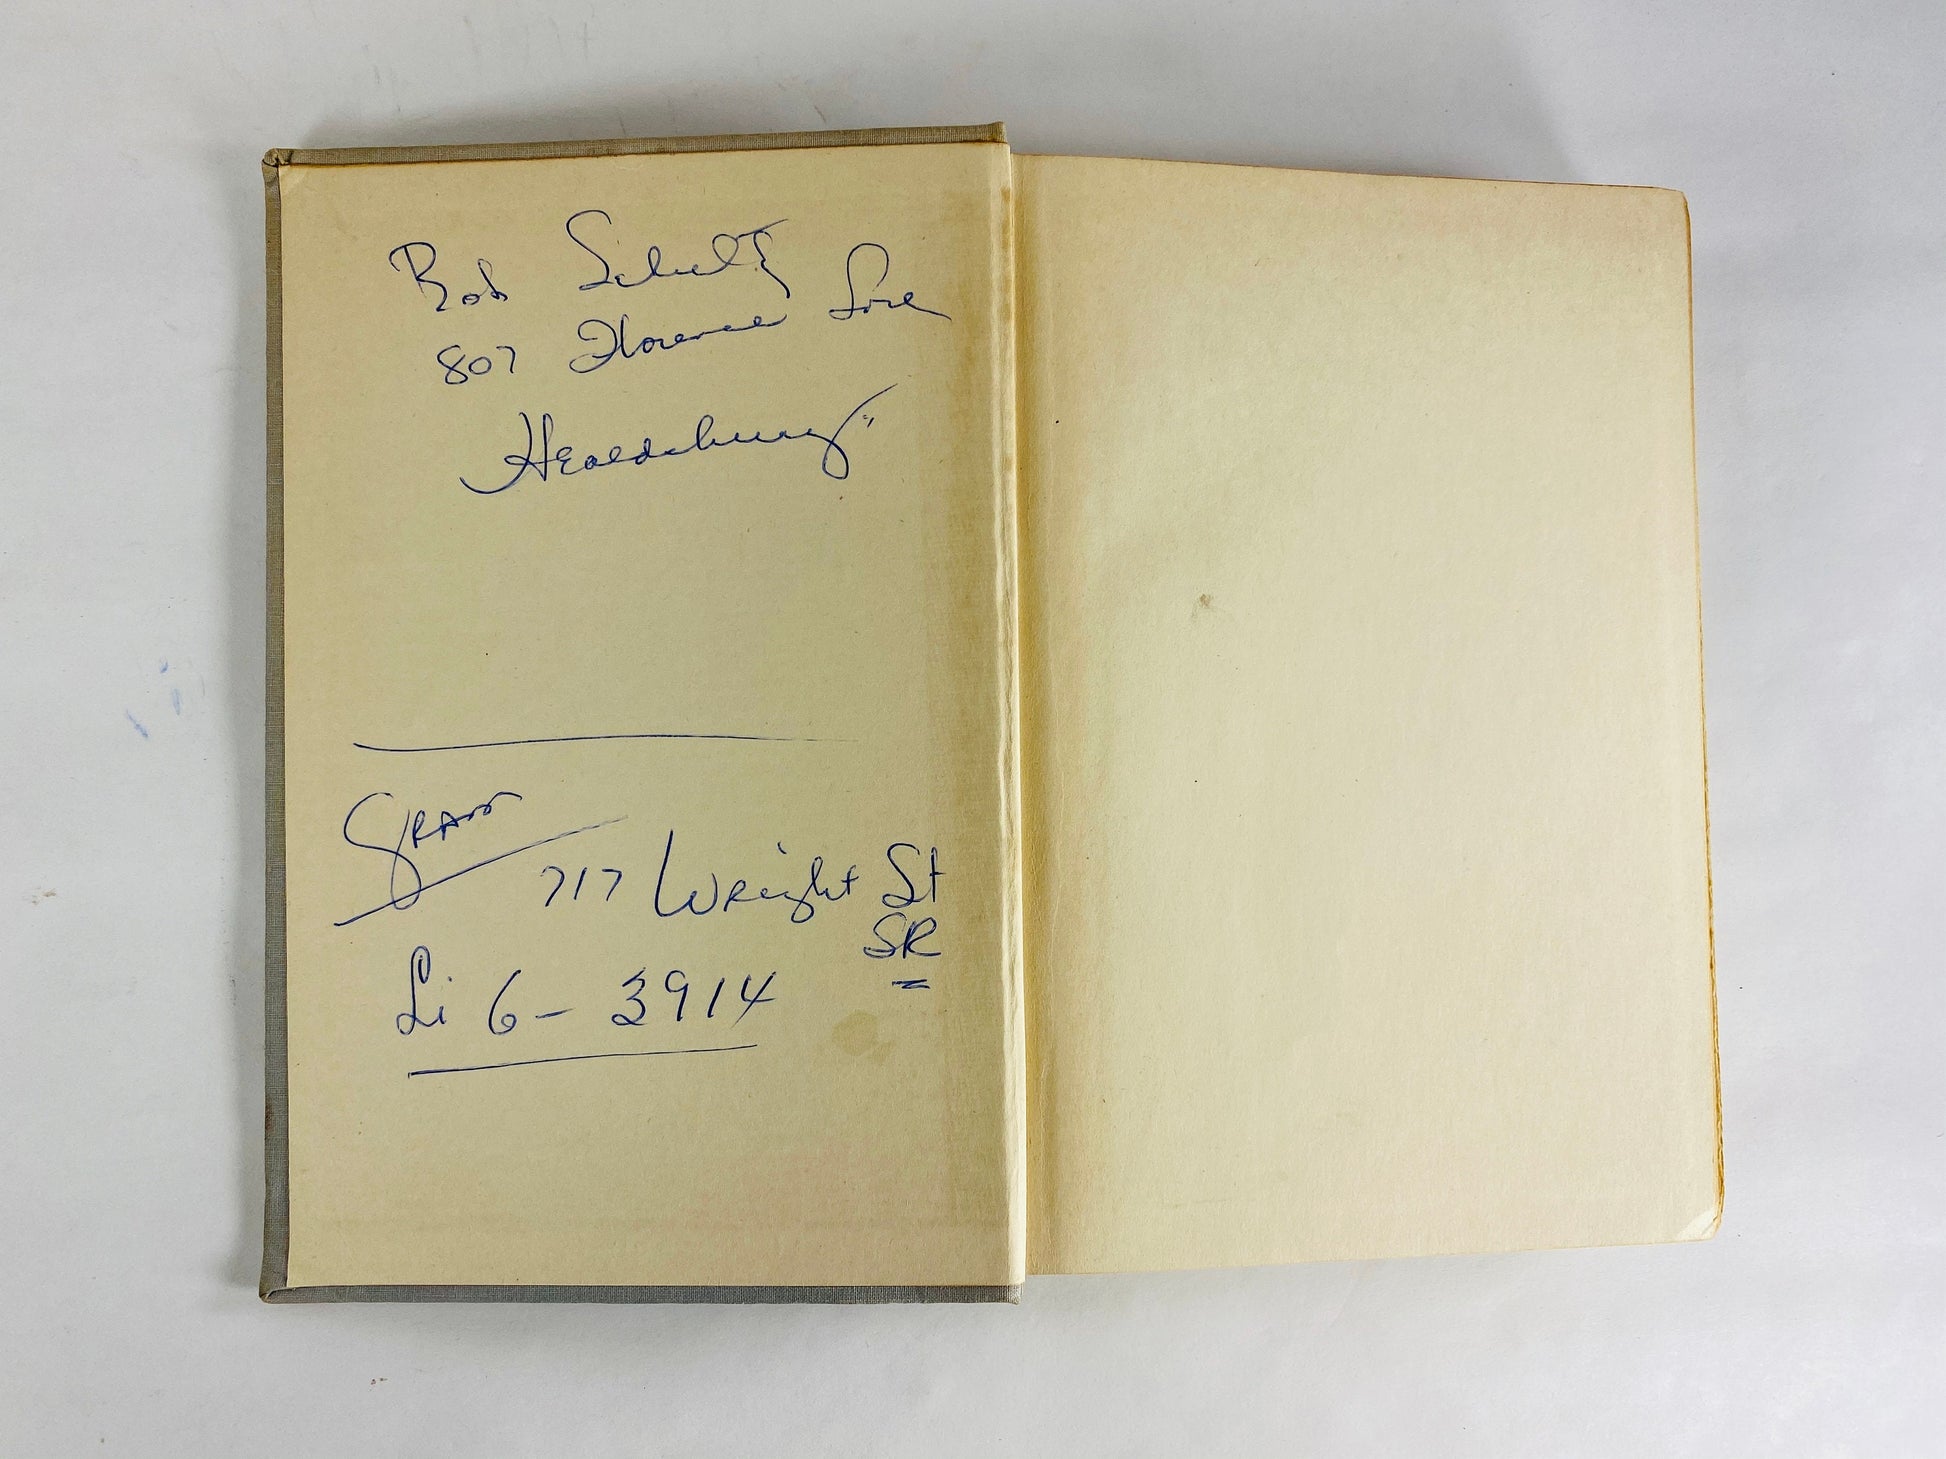 Bob Schultz
807 Florence Lane
Healdsburg
GRANT
717 Wright St
SR
Li 6-3914